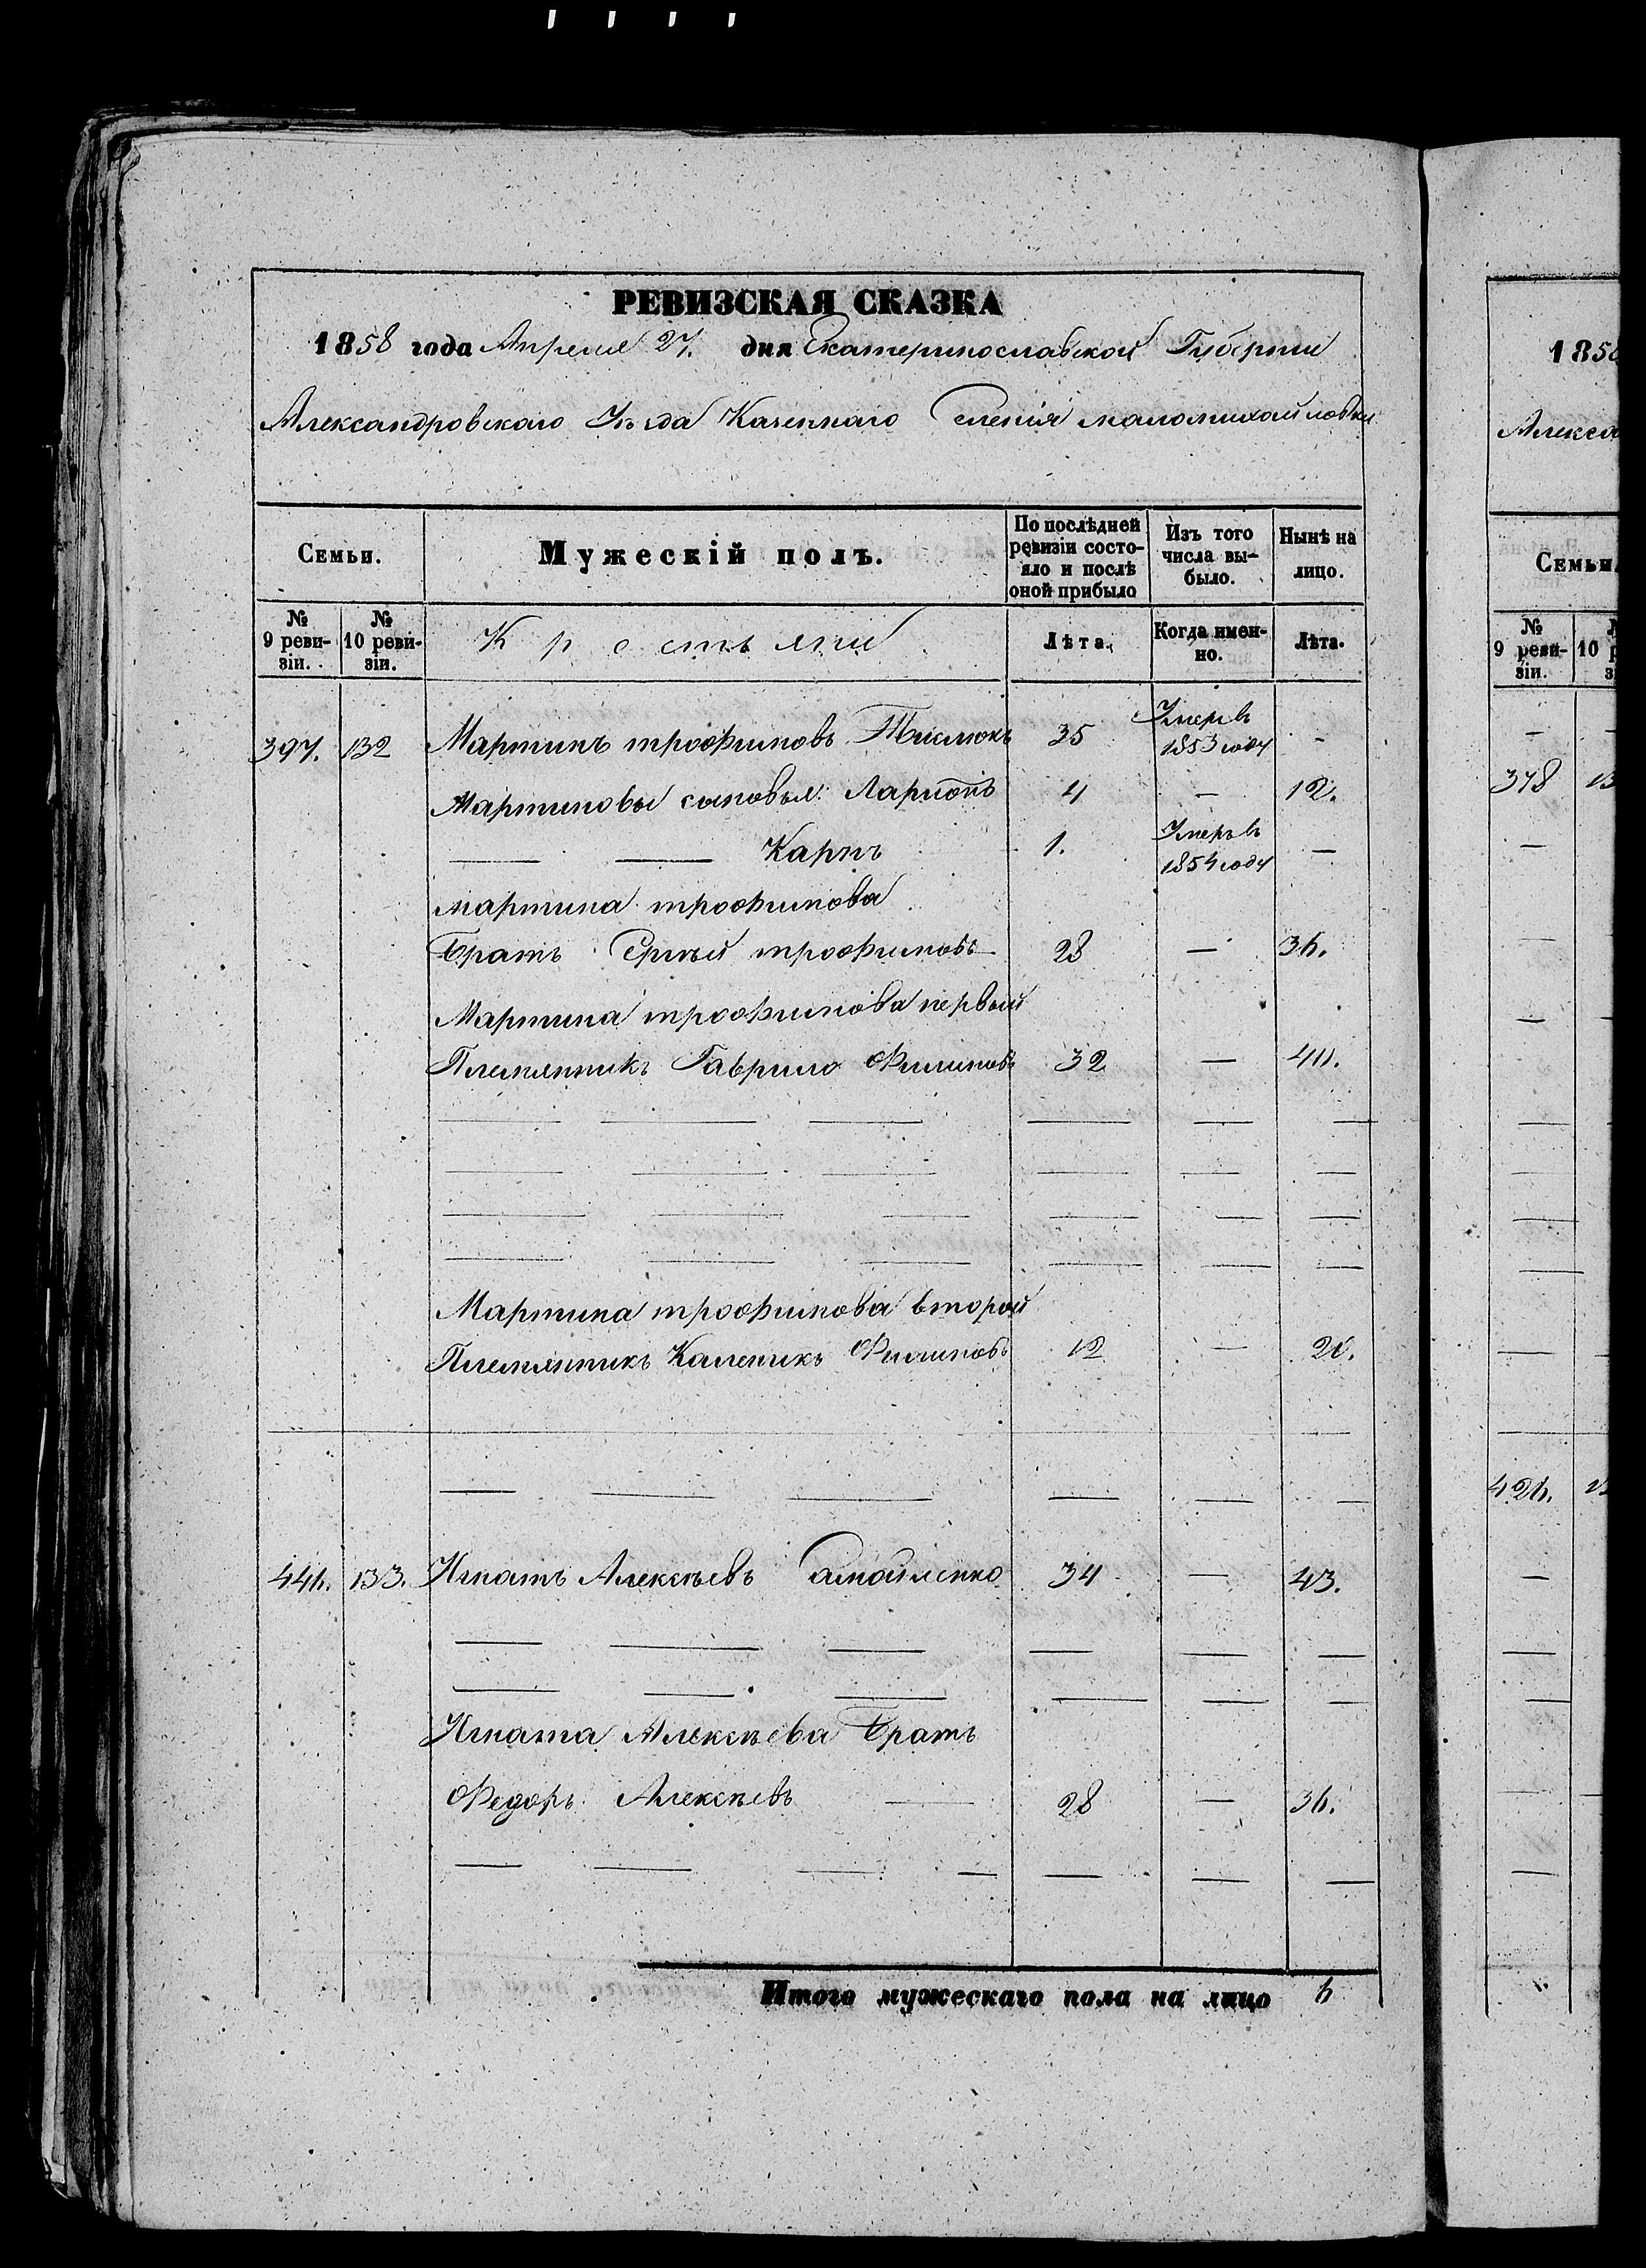 РЕВИЗСКАЯ СКАЗКА
1858 года Апреля 27. дня Екатеринославской Губернии
Александровскаго Уѣзда Казеннаго Селенія маломихайловки
Семьи.
Мужескій полъ.
По послѣдней ревизіи состояло и послѣ оной прибыло
Изъ того числа выбыло.
Нынѣ на лицо.
№ 9 ревизіи.
№ 10 ревизіи.
Крестьяне
Лѣта.
Когда именно.
Лѣта.
397. 132 Мартинъ трофимовъ 35 Умеръ в 1853 году -
Мартиновы сыновья: Ларіонъ 4 — 12.
— — Карпъ 1. Умеръ в 1854 году —
мартина трофимова
Братъ Сергѣй трофимовъ 28 — 36.
Мартина трофимова первый
Племянникъ Гаврило Филиповъ 32 — 40.
Мартина трофимова второй
Племянникъ Каленикъ Филиповъ 12 — 20.
446. 133. Игнатъ Алексѣевъ Самойленко 34 — 43.
Игната Алексѣева Братъ
Федоръ Алексѣевъ — 28 — 36.
Итого мужескаго пола на лицо 6
1858
Алекса
Семьи
№ 9 ревизіи.
378
426.